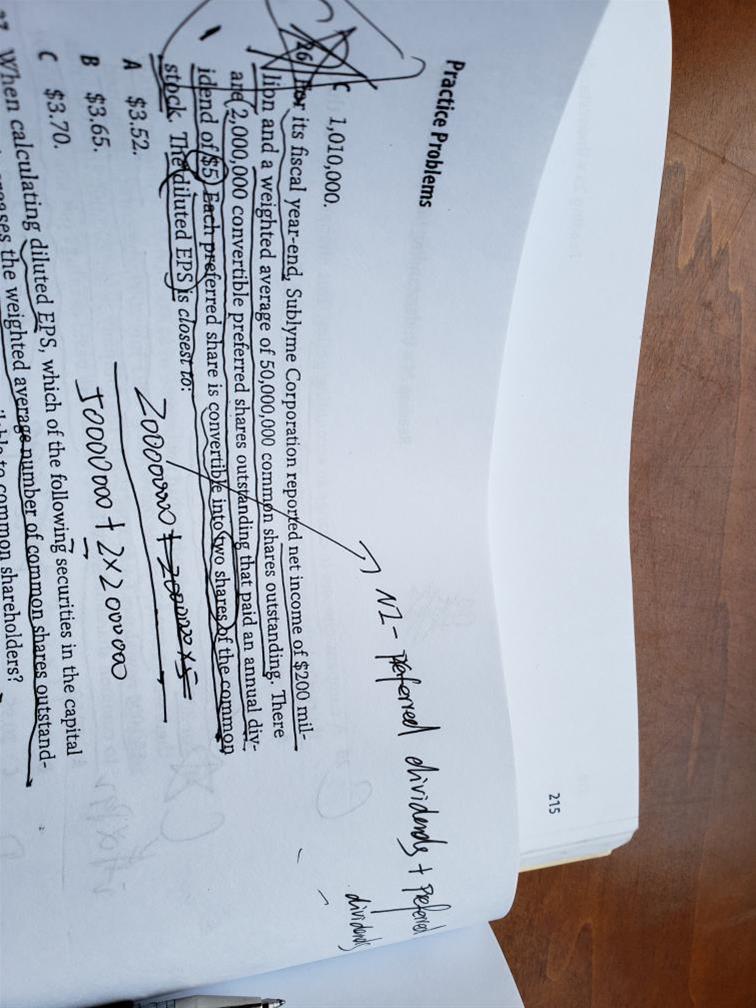 215
Practice Problems
C 1,010,000.
26 For its fiscal year-end, Sublyme Corporation reported net income of $200 mil-
lion and a weighted average of 50,000,000 common shares outstanding. There
are 2,000,000 convertible preferred shares outstanding that paid an annual div-
idend of $5. Each preferred share is convertible into two shares of the common
stock. The diluted EPS is closest to:
A $3.52.
B $3.65.
C $3.70.
When calculating diluted EPS, which of the following securities in the capital
the weighted average number of common shares outstand-
common shareholders?
NI - Preferred dividends + Preferred
dividends
50000000 + 2x2000000